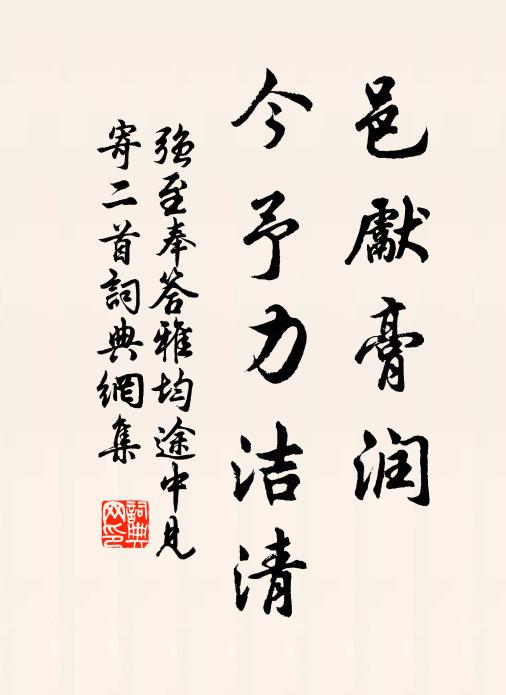 邑獻膏润
今予力洁清
強至奉答雅均途中見
寄二首詞典網集
詞典
网印